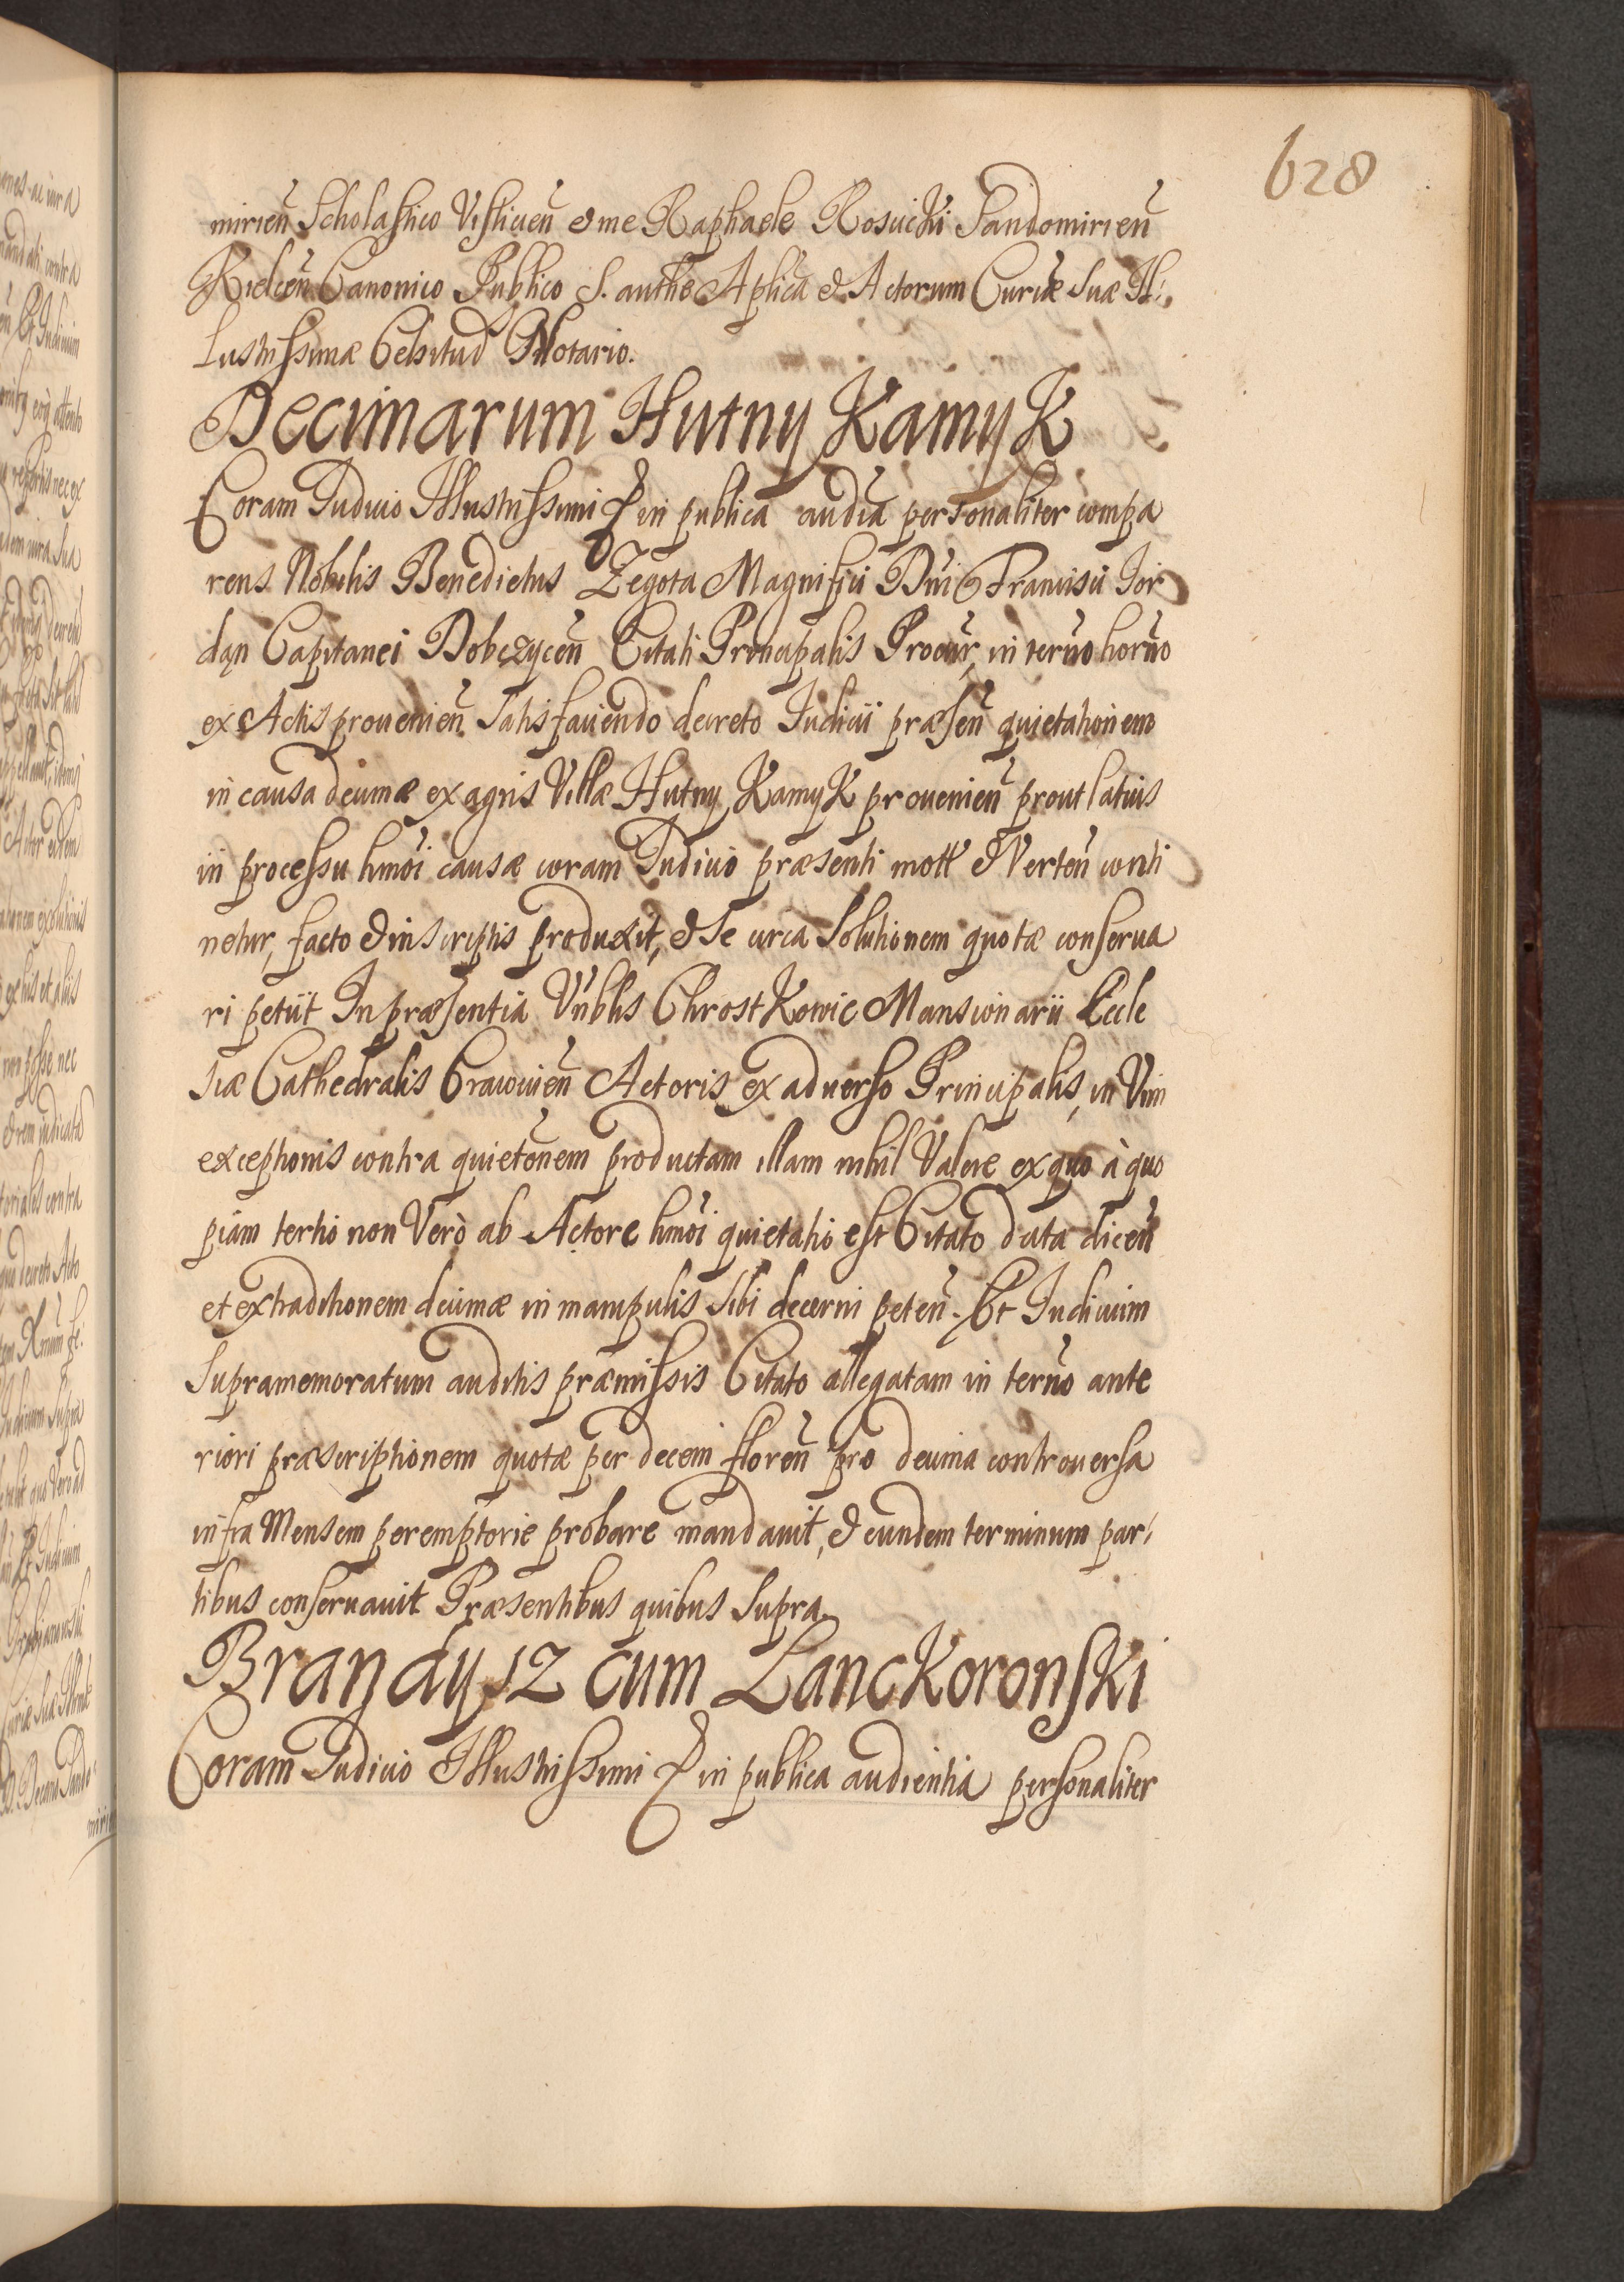 628
mirien̄ Scholastico Visliceн̄ & me Raphaele Rosucki Sandomirien̄
Kielcen̄ Canonico Publico S. authe Aplica & Actorum Curiæ Suæ Il:
lustrissimæ Celsitud Notario.
Decimarum Hutny Kamyk
Coram Judicio Illustrissimi & in publica audia personaliter compa
rens Nobilis Benedictus Zegota Magnifici Dni Francisci Jor
dąn Capitanei Dobczycen̄ Citati Principalis Procur, in termo horno
ex Actis provenien̄ Satisfaciendo decreto Judicii præsen̄ quietationem
in causa decimæ ex agris Villæ Hutny Kamyk provenien̄ prout latius
in processu hmoi causæ coram Judicio præsenti mott & Verten̄ conti
netur, facto & in scriptis produxit, & Se circa Solutionem quotæ conserva
ri petiit In præsentia Vnblis Chrostkowic Mansionarii Eccle
siæ Cathedralis Cracovien̄ Actoris ex adverso Principalis, in Vim
exceptionis contra quietonem productam illam nihil Valere ex quo à quo
piam tertio non Verò ab Actore hmoi quietatio est Citato data dicen̄
et extraditionem decimæ in manipulis Sibi decerni peten̄. Et Judicium
Supramemoratum auditis præmissis Citato allegatam in termo ante
riori præscriptionem quotæ per decem floren̄ pro decima controversa
infra Mensem peremptorie probare mandavit, & eundem terminum par:
tibus conservavit Præsentibus quibus Supra.
Brandysz cum Lanckoronski
Coram Judicio Illustrissimi & in publica audientia personaliter